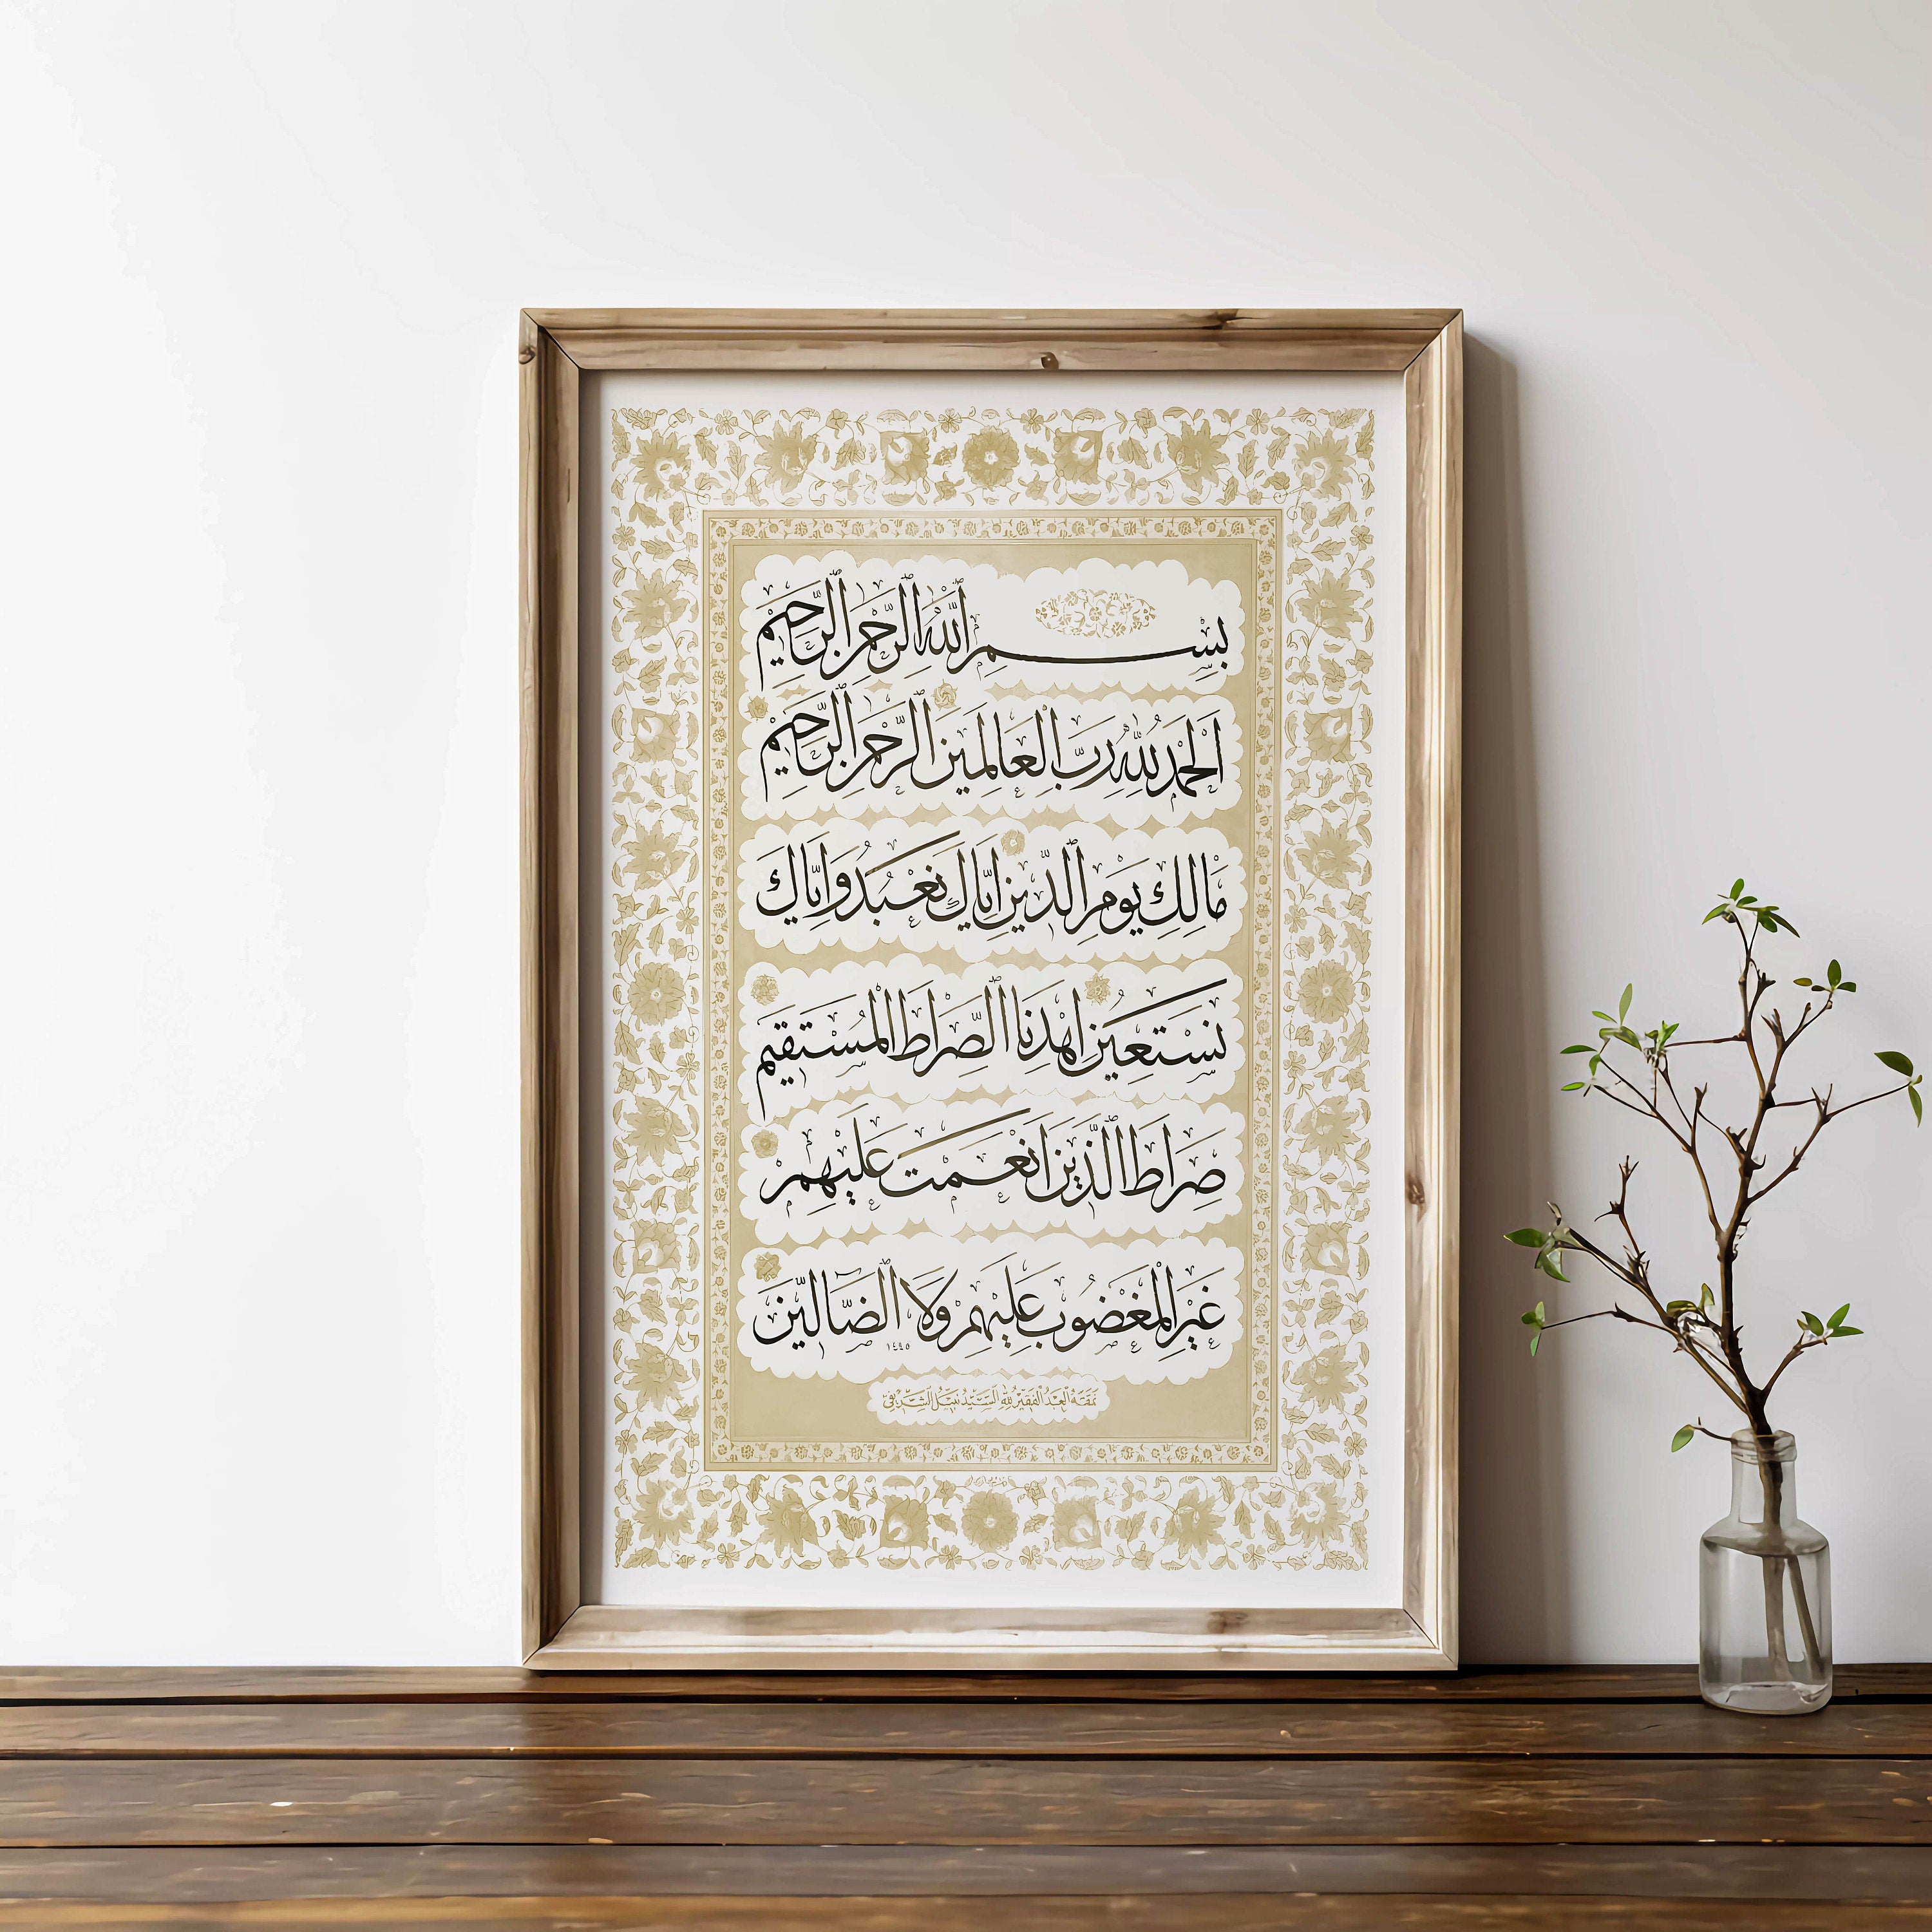 بِسْمِ اللَّهِ الرَّحْمَنِ الرَّحِيمِ
اَلْحَمْدُ لِلَّهِ رَبِّ الْعَالَمِينَ الرَّحْمَنِ الرَّحِيمِ
مَالِكِ يَوْمِ الدِّينِ اِيَّاكَ نَعْبُدُ وَاِيَّاكَ
نَسْتَعِينُ اِهْدِنَا الصِّرَاطَ الْمُسْتَقِيمَ
صِرَاطَ الَّذِينَ اَنْعَمْتَ عَلَيْهِمْ
غَيْرِ الْمَغْضُوبِ عَلَيْهِمْ وَلَا الضَّالِّينَ
١٤٤٥
نَمَقَهُ الْعَبْدُ الْفَقِيرُ لِلَّهِ السَّيِّدُ نَبِيلُ الشَّرِيفِي